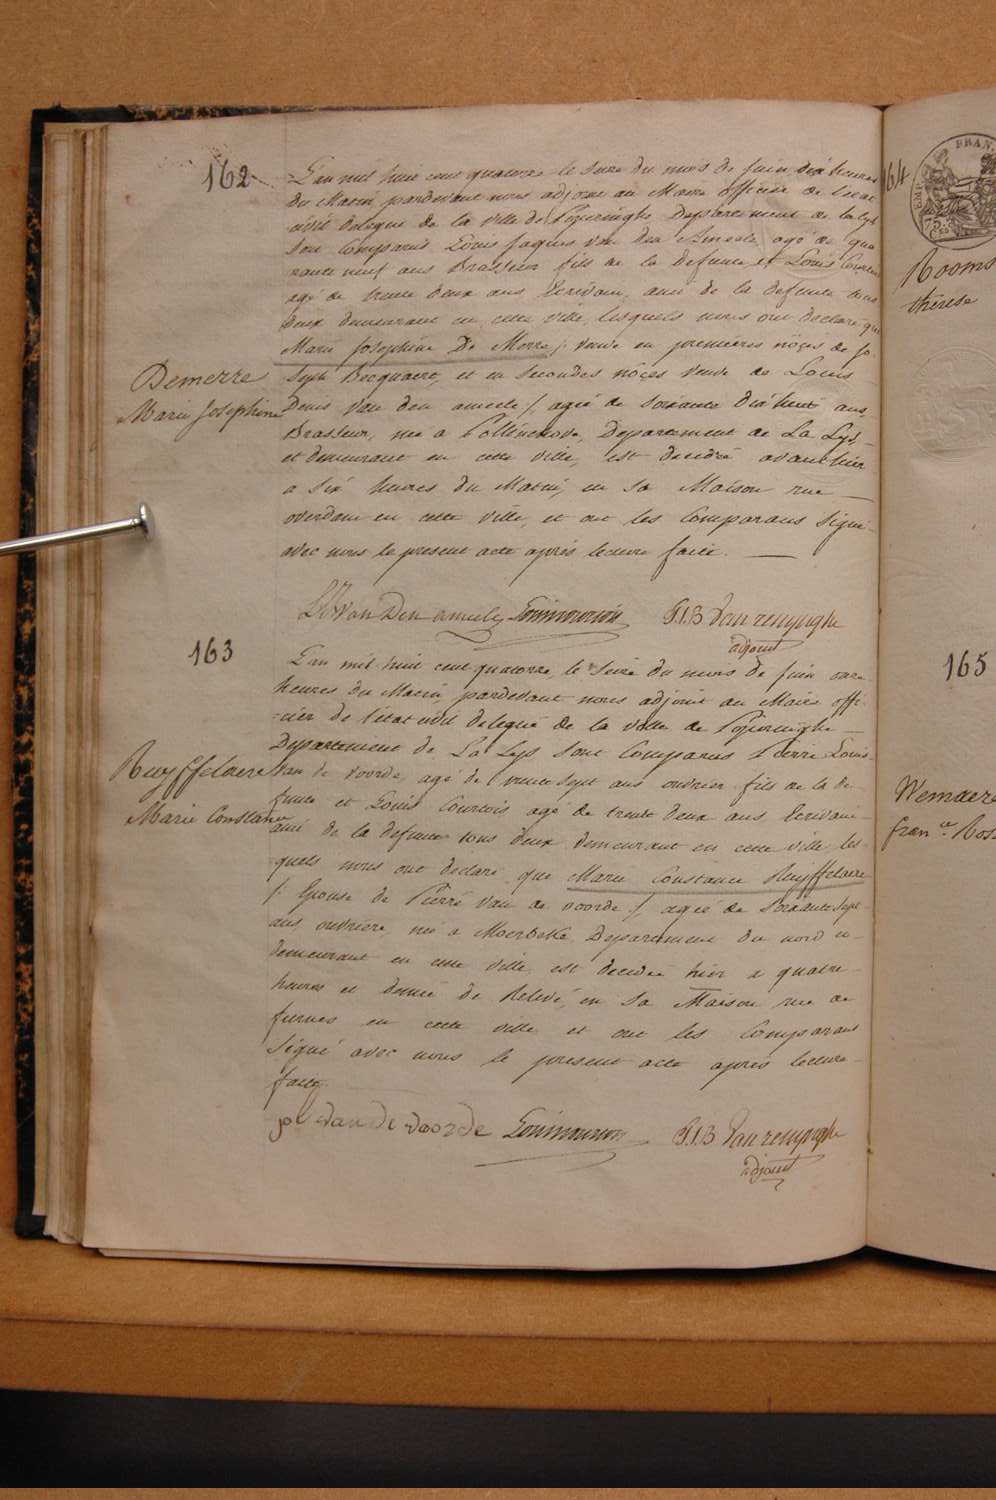 162
L'an mil huit cent quatorze le seize du mois de Juin dix heures
du Matin, pardevant nous adjoint au Maire officier de l'etat
civil delegué de la ville de Poperinghe Departement de la Lys
sont comparus Louis Jaques van den Ameele agé de qua
rante neuf ans Brasseur fils de la defunte et Louis Courtois
agé de trente deux ans Ecrivain, ami de la defunte tous
deux demeurant en cette ville, lesquels nous ont declaré que
Marie Josephine De Merre /: veuve en premieres nôces de Jo
seph Becquaert, et en secondes nôces veuve de Louis
Denis van den ameele :/, agée de soixante dix huit ans,
Brasseur, née a Pollinchove, Departement de La Lys
et demeurant en cette ville, est decedée avant hier
a six heures du Matin, en sa Maison rue
overdam en cette ville, et ont les Comparans signé
avec nous le present acte après lecture faite.
Demerre
Marie Josephine
Van Den ameele P.I.B Van renynghe
adjoint
163
L'an mil huit cent quatorze, le seize du mois de Juin onze
heures du Matin, pardevant nous adjoint au Maire offi-
cier de l'état civil delegué de la ville de Poperinghe
Departement de La Lys sont Comparus Pierre Louis
van de voorde, agé de trente sept ans ouvrier fils de la de-
funte et Louis Courtois agé de trente deux ans Ecrivain
ami de la defunte tous deux demeurant en cette ville les-
quels nous ont declaré que Marie Constance Ruyffelaere
/: Epouse de Pierre van de voorde :/, agée de soixante sept
ans, ouvrière, née a Moerbeke, Departement du nord et
demeurant en cette ville, est decedée hier a quatre
heures et demie de Relevé, en sa Maison rue de
furnes en cette ville et ont les Comparans
signé avec nous le present acte après lecture
faite.
Ruyffelaere
Marie Constance
van de voorde P.I.B Van renynghe
adjoint
164
FRAN
Rooms
thérese
165
Wemaere
fran.ce Ros